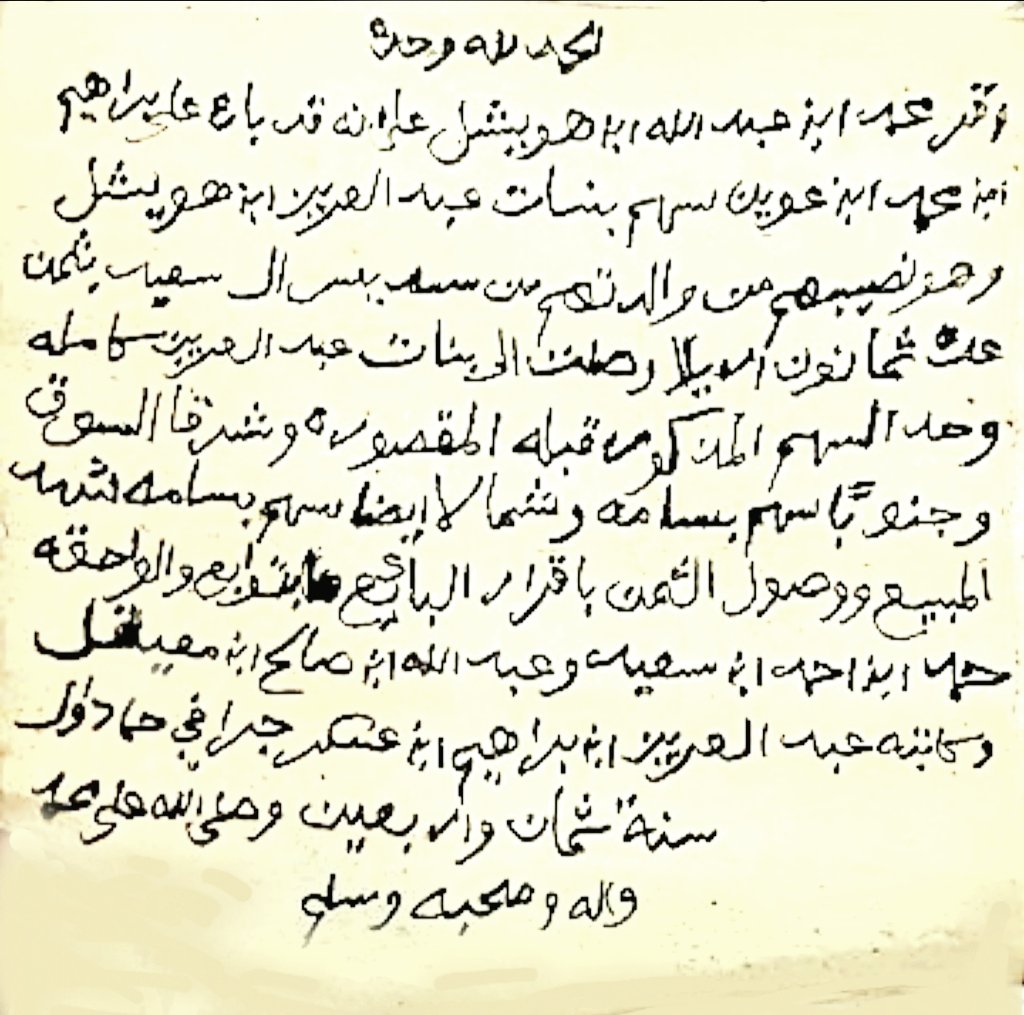 الحمد لله وحده
اقر محمد ابن عبد الله ابن هويشل على انه قد باع على براهيم
ابن محمد ابن عوين سهم بنات عبد العزيز ابن هويشل
وهو نصيبهم من والدتهم من ال سعيد بثمن
عدة ثمانون اريلا وصلت الى بنات عبد العزيز كامله
وحد السهم المذكور قبله المقصوره وشرقا السوق
وجنوبًا سهم بسامه وشمالا ايضا سهم بسامه شهد
المبيع ووصول الثمن باقرار البائع بتوابع والواحقه
حمد ابن احمد ابن سعيد وعبد الله ابن صالح ابن معيذل
وكاتبه عبد العزيز ابن براهيم ابن عسكر جرا في جماد اول
سنة ثمان واربعين وصلى الله على محمد
واله وصحبه وسلم